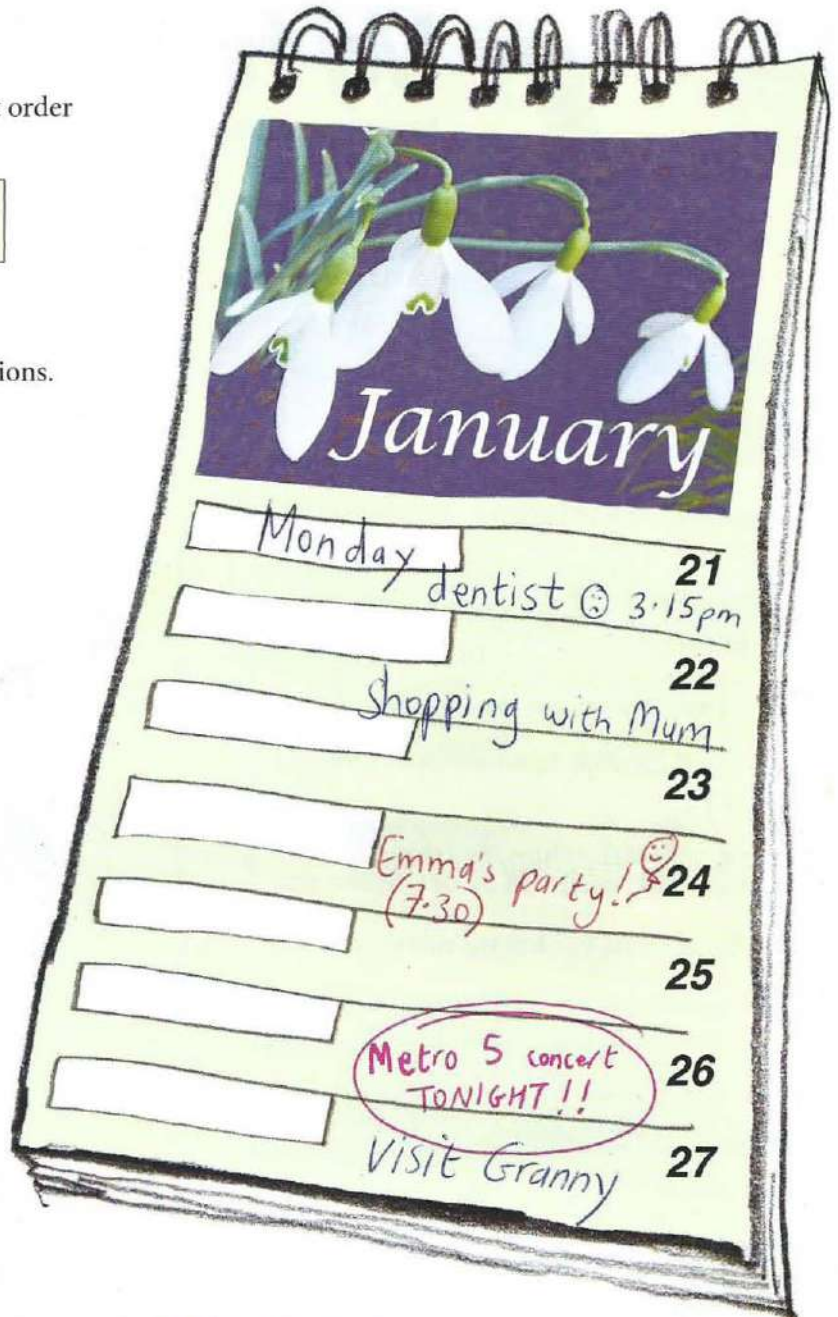 order
ions.
January
Monday
21
dentist 3.15pm
22
Shopping with Mum
23
24
Emma's party!
(7.30)
25
26
Metro 5 concert
TONIGHT!!
27
Visit Granny